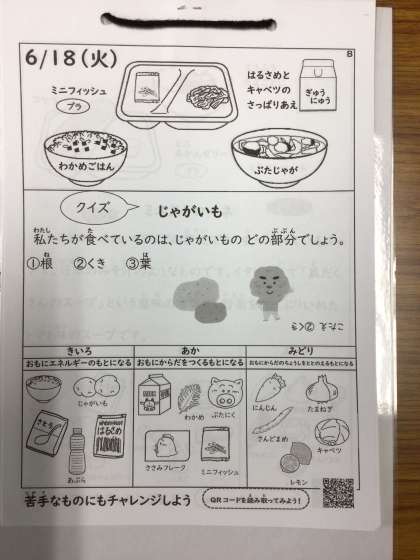 6/18(火)
8
ミニフィッシュ
プラ
はるさめと
キャベツの
さっぱりあえ
ぎゅう
にゅう
わかめごはん
ぶたじゃが
クイズ
じゃがいも
私たちが食べているのは、じゃがいもの どの部分でしょう。
①根 ②くき ③葉
こたえ ②くき
きいろ
あか
みどり
おもにエネルギーのもとになる
おもにからだをつくるもとになる
おもにからだのちょうしをととのえるもとになる
じゃがいも
さとう
はるさめ
あぶら
わかめ
ぶたにく
ささみフレーク
ミニフィッシュ
にんじん
たまねぎ
さんどまめ
キャベツ
レモン
苦手なものにもチャレンジしよう
QRコードを読み取ってみよう!